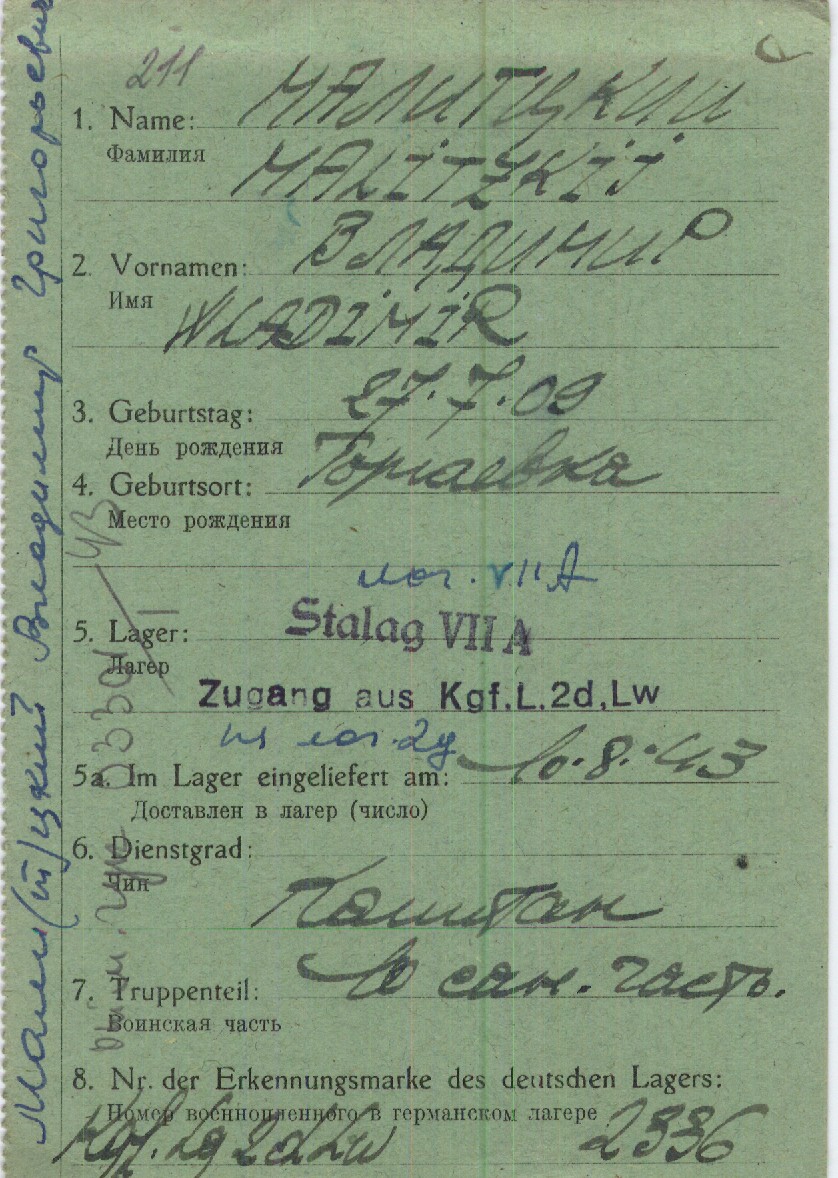 211
1. Name: МАЛИТЦКИЙ
Фамилия
MALITZKIJ
2. Vornamen: ВЛАДИМИР
Имя
WLADIMIR
3. Geburtstag: 27.7.09
День рождения
4. Geburtsort:
Место рождения
лаг. VII A
5. Lager: Stalag VII A
Лагерь
Zugang aus Kgf.L.2d,Lw
из лаг. 2д
5a. Im Lager eingeliefert am: 10.8.43
Доставлен в лагер (число)
6. Dienstgrad:
Чин
Капитан
7. Truppenteil: 10 сан. часть.
Воинская часть
8. Nr. der Erkennungsmarke des deutschen Lagers:
Номер военнопленного в германском лагере
Kgf. Lg 2d Lw 2336
Мали(т)цкий Владимир Григорьевич